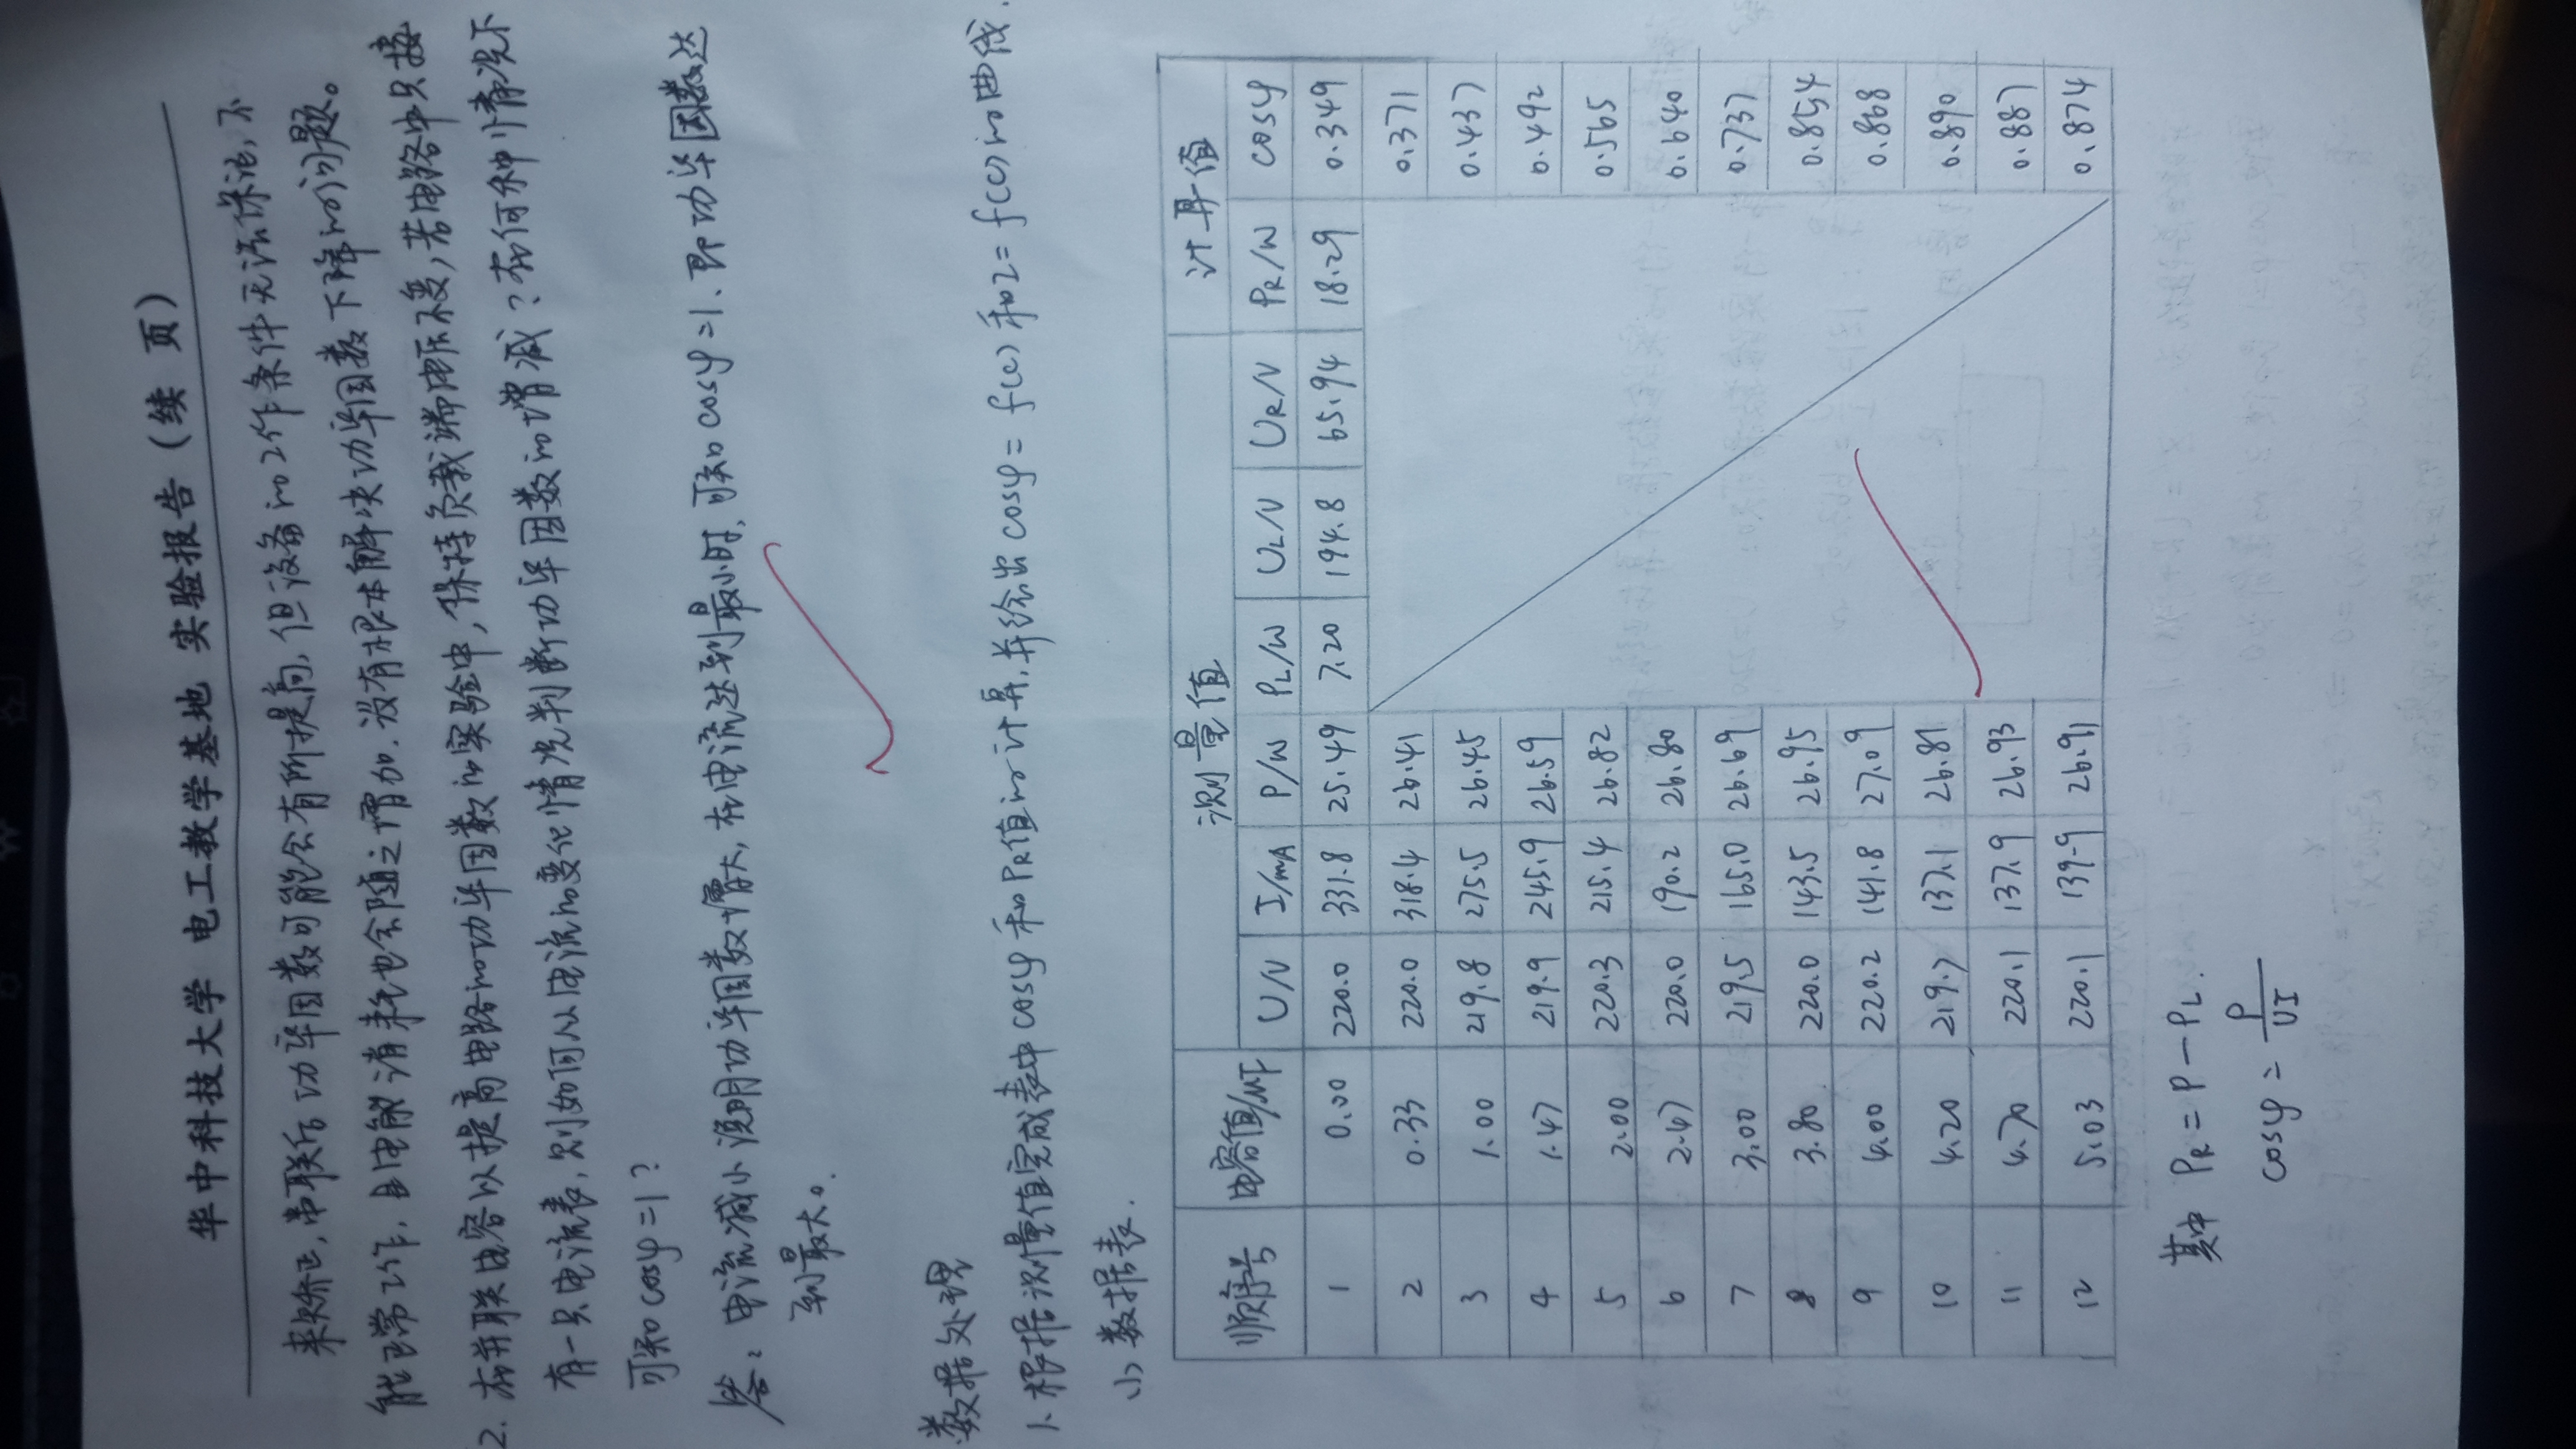 华中科技大学 电工教学基地 实验报告（续 页）
来矫正，串联后功率因数可能会有所提高，但设备的工作条件无法保证，不
能正常工作，且电能消耗也会随之增加，没有根本解决功率因数下降的问题。
2. 在并联电容以提高电路的功率因数的实验中，保持负载端电压不变，若电路中只接
有一只电流表，则如何从电流的变化情况判断功率因数的增减？在何种情况下
可知 cosφ=1？
答：电流减小说明功率因数增大，在电流达到最小时，可知 cosφ=1. 即功率因数达
到最大。
数据处理
1. 根据测量值完成表中 cosφ 和 PR值的计算，并绘出 cosφ= f(c) 和I= f(c)的曲线.
(1) 数据表.
顺序号 电容值/μF 测量值 计算值
U/V I/mA P/W PL/W UL/V UR/V PR/W cosφ
1 0.00 220.0 331.8 25.49 7.20 194.8 65.94 18.29 0.349
2 0.33 220.0 318.4 26.41 0.371
3 1.00 219.8 275.5 26.45 0.437
4 1.47 219.9 245.9 26.59 0.492
5 2.00 220.3 215.4 26.82 0.565
6 2.47 220.0 190.2 26.80 0.640
7 3.00 219.5 165.0 26.69 0.737
8 3.80 220.0 143.5 26.95 0.854
9 4.00 220.2 141.8 27.09 0.868
10 4.20 219.7 137.1 26.81 0.890
11 4.70 220.1 137.9 26.93 0.887
12 5.03 220.1 139.9 26.91 0.874
其中 PR = P - PL.
cosφ = P/UI